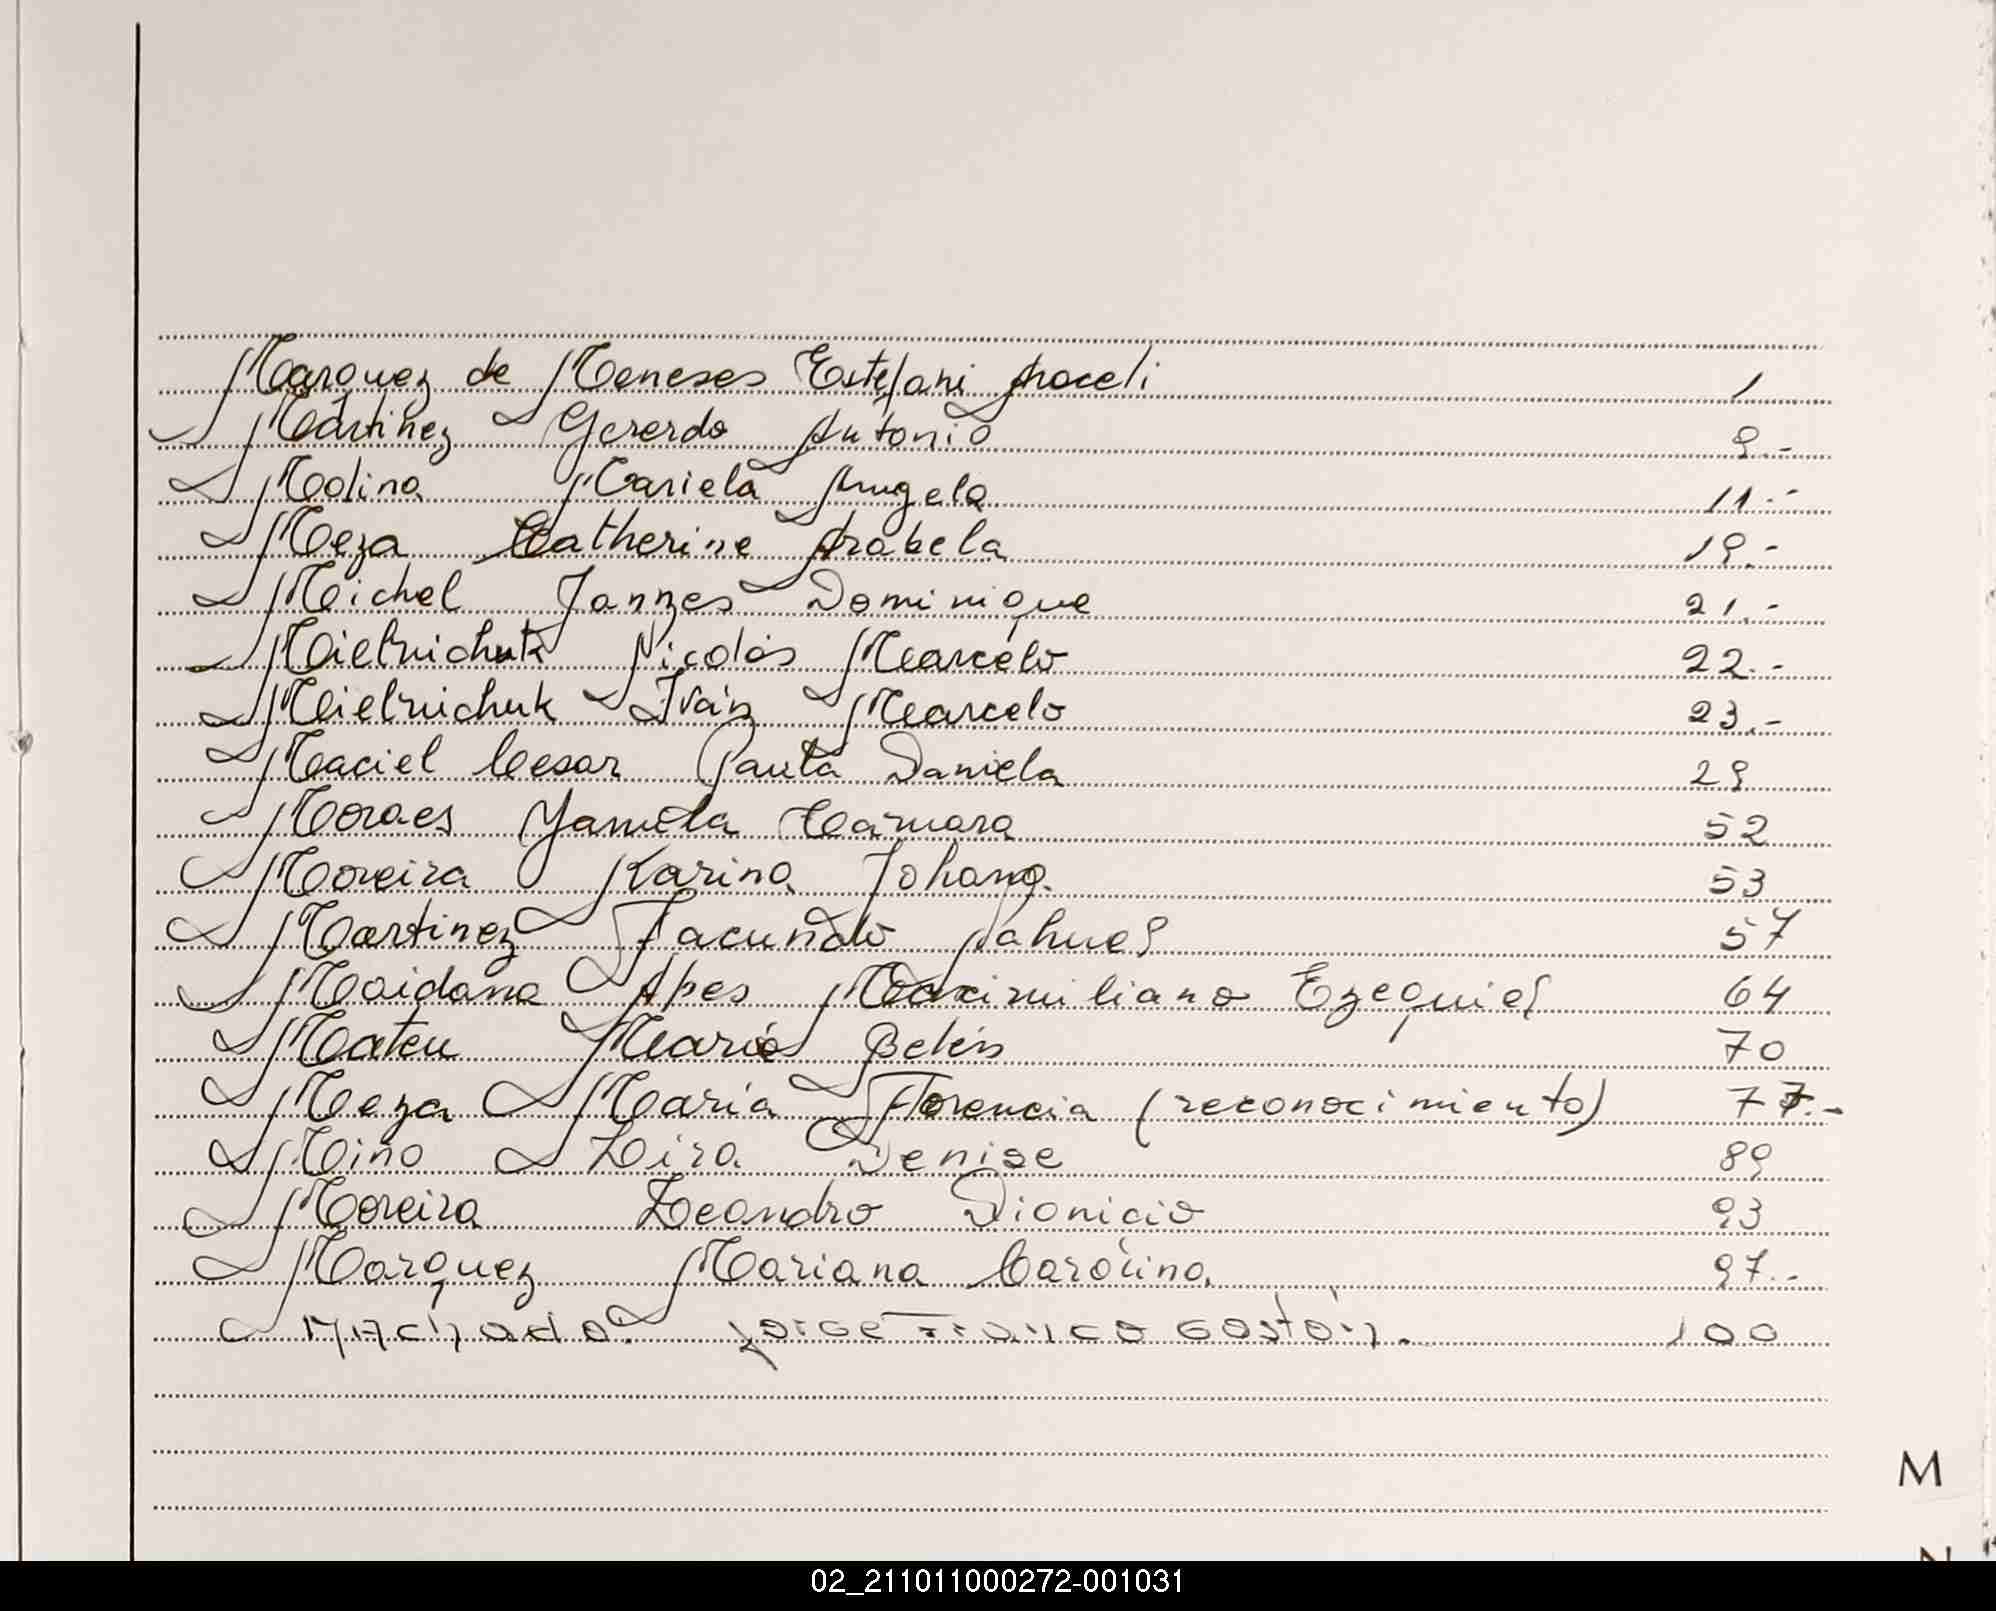 Marquez de Meneses Estefani Araceli 1
Martinez Gerardo Antonio 9.-
Molina Mariela Angela 11.-
Meza Catherine Arabela 19.-
Michel Jannes Dominique 21.-
Mielnichuk Nicolás Marcelo 22.-
Mielnichuk Iván Marcelo 23.-
Maciel Cesar Paula Daniela 29
Moraes Yamila Tamara 52
Moreira Karina Johana. 53
Martinez Facundo Nahuel 57
Maidana Maximiliano Ezequiel 64
Mateu María Belén 70
Meza María Florencia (reconocimiento) 77.-
Mino Lira Denise 89
Moreira Leandro Dionicio 93
Marquez Mariana Carolina 97.-
Machado. Jorge Franco Gastón. 100
M
N
02_211011000272-001031